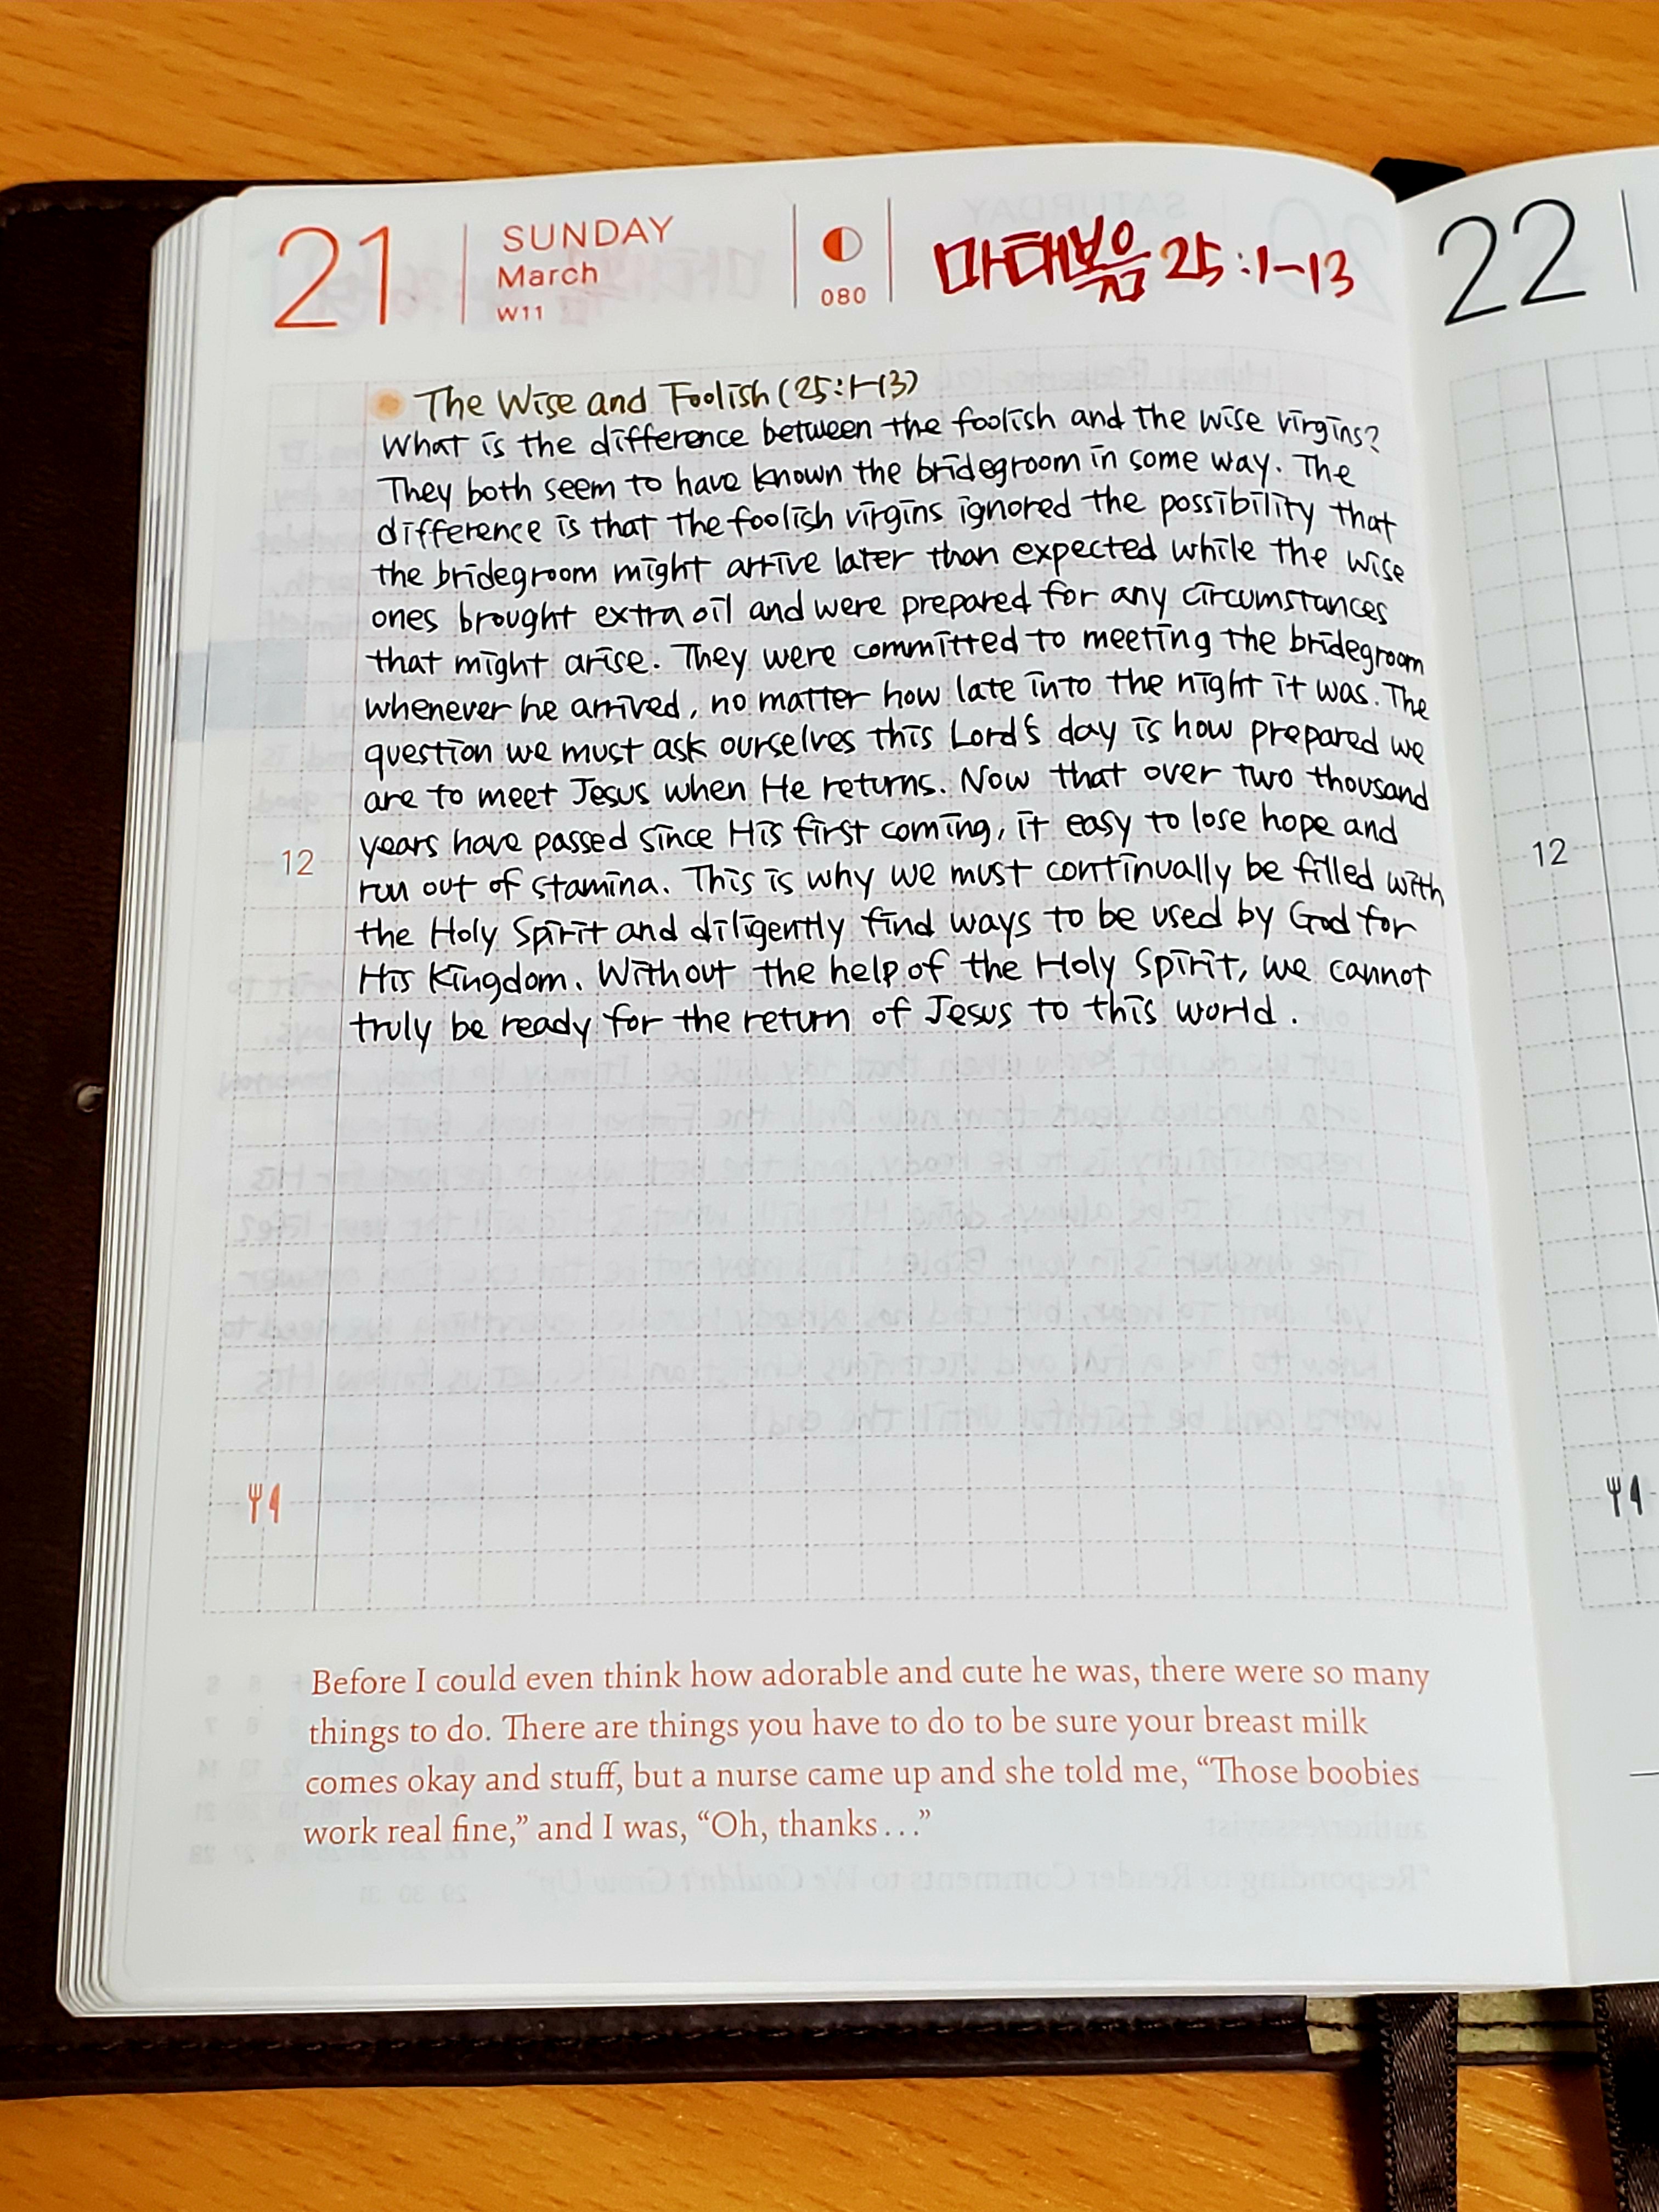 21
SUNDAY
March
W11
080
마태복음 25:1-13
22
The Wise and Foolish (25:1-13)
What is the difference between the foolish and the wise virgins?
They both seem to have known the bridegroom in some way. The
difference is that the foolish virgins ignored the possibility that
the bridegroom might arrive later than expected while the wise
ones brought extra oil and were prepared for any circumstances
that might arise. They were committed to meeting the bridegroom
whenever he arrived, no matter how late into the night it was. The
question we must ask ourselves this Lord's day is how prepared we
are to meet Jesus when He returns. Now that over two thousand
years have passed since His first coming, it easy to lose hope and
12
run out of stamina. This is why we must continually be filled with
the Holy Spirit and diligently find ways to be used by God for
His Kingdom. Without the help of the Holy Spirit, we cannot
truly be ready for the return of Jesus to this world.
12
Before I could even think how adorable and cute he was, there were so many
things to do. There are things you have to do to be sure your breast milk
comes okay and stuff, but a nurse came up and she told me, “Those boobies
work real fine,” and I was, “Oh, thanks...”